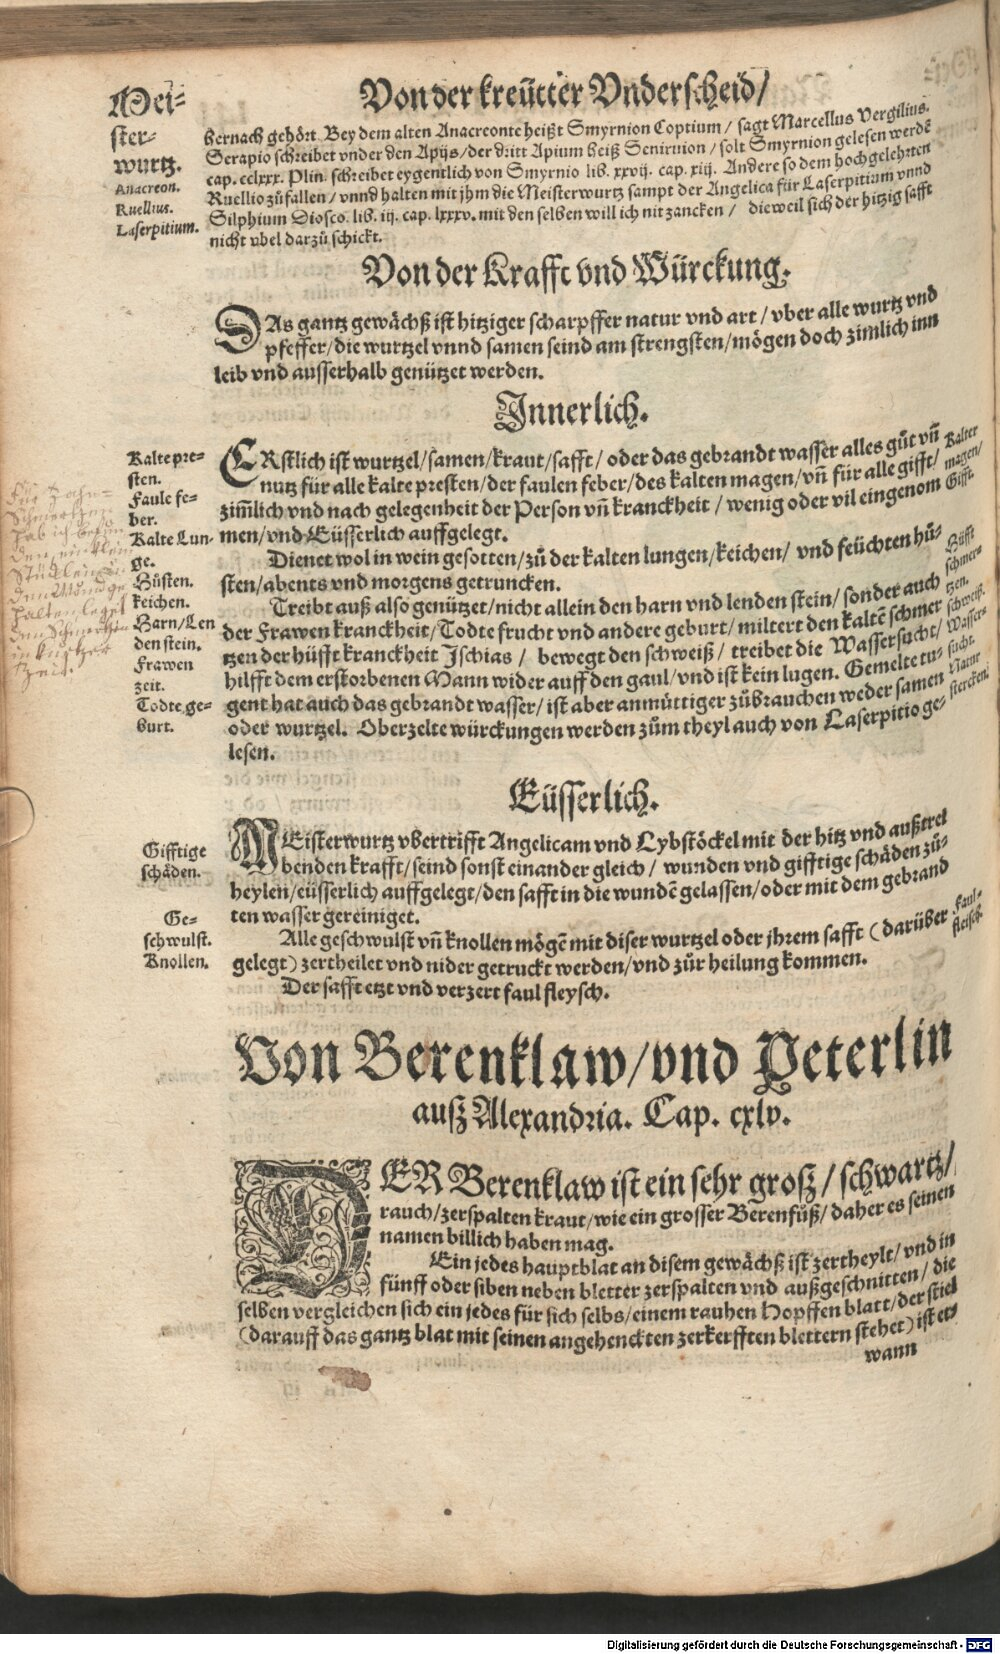 Von der kreütter Vnderscheid/
Mei-
ster-
wurtz.
Anacreon.
Ruellius.
Laserpitium.
hernach gehört. Bey dem alten Anacreonte heißt Smyrnion Coptium / sagt Marcellus Vergilius.
Serapio schreibet vnder den Apijs/der dritt Apium heiß Seniruion / solt Smyrnion gelesen werdē
cap. cclxxx. Plin. schreibet eygentlich von Smyrnio lib. xxvij. cap. xiij. Andere so dem hochgelehrten
Ruellio zůfallen / vnnd halten mit jhm die Meisterwurtz sampt der Angelica für Laserpitium vnnd
Silphium Diosco. lib. iij. cap. lxxxv. mit den selben will ich nit zancken / dieweil sich der hitzig safft
nicht vbel darzů schickt.
Von der Krafft vnd Würckung.
DAs gantz gewächß ist hitziger scharpffer natur vnd art / vber alle wurtz vnd
pfeffer/die wurtzel vnnd samen seind am strengsten/mögen doch zimlich inn
leib vnd ausserhalb genützet werden.
Innerlich.
Kalte pre-
sten.
Faule fe-
ber.
Kalte Lun-
ge.
Hüsten.
Keichen.
Harn/Len
denstein.
Frawen
zeit.
Todte ge-
burt.
ERstlich ist wurtzel/samen/kraut/safft / oder das gebrandt wasser alles gůt vn̄
nutz für alle kalte presten/der faulen feber/des kalten magen/vn̄ für alle gifft/
zim̄lich vnd nach gelegenheit der Person vn̄ kranckheit / wenig oder vil eingenom
men/vnd Eüsserlich auffgelegt.
Dienet wol in wein gesotten/zů der kalten lungen/keichen/ vnd feüchten hů-
sten/abents vnd morgens getruncken.
Treibt auß also genützet/nicht allein den harn vnd lenden stein/ sonder auch
der Frawen kranckheit/Todte frucht vnd andere geburt/ miltert den kaltē schmer
tzen der hüfft kranckheit Ischias / bewegt den schweiß / treibet die Wassersucht/
hilfft dem erstorbenen Mann wider auff den gaul/vnd ist kein lugen. Gemelte tu-
gent hat auch das gebrandt wasser/ ist aber anmüttiger zůbrauchen weder samen
oder wurtzel. Oberzelte würckungen werden zům theyl auch von Laserpitio ge-
lesen.
Kalter
magen/
Gifft.
Hüfft
schmer-
tzen.
Schweiß.
Wasser-
sucht.
Natur
stercken.
Eüsserlich.
Gifftige
schäden.
Ge-
schwulst.
Knollen.
MEisterwurtz vbertrifft Angelicam vnd Lybstöckel mit der hitz vnd außtrei
benden krafft/seind sonst einander gleich / wunden vnd gifftige schäden zů-
heylen/eüsserlich auffgelegt/den safft in die wundē gelassen/oder mit dem gebrand
ten wasser gereiniget.
Alle geschwulst vn̄ knollen mögē mit diser wurtzel oder jhrem safft (darüber
gelegt) zertheilet vnd nider getruckt werden/vnd zůr heilung kommen.
Der safft etzt vnd verzert faul fleysch.
Faul-
fleisch.
Von Berenklaw/vnd Peterlin
auß Alexandria. Cap. cxlv.
DER Berenklaw ist ein sehr groß / schwartz/
rauch/zerspalten kraut/wie ein grosser Berenfůß/ daher es seinen
namen billich haben mag.
Ein jedes hauptblat an disem gewächß ist zertheylt/vnd in
fünff oder siben neben bletter zerspalten vnd außgeschnitten / die
selben vergleichen sich ein jedes für sich selbs/einem rauhen Hopffen blatt/der stiel
(darauff das gantz blat mit seinen angehenckten zerkerfften blettern stehet) ist et-
wann
Digitalisierung gefördert durch die Deutsche Forschungsgemeinschaft - DFG